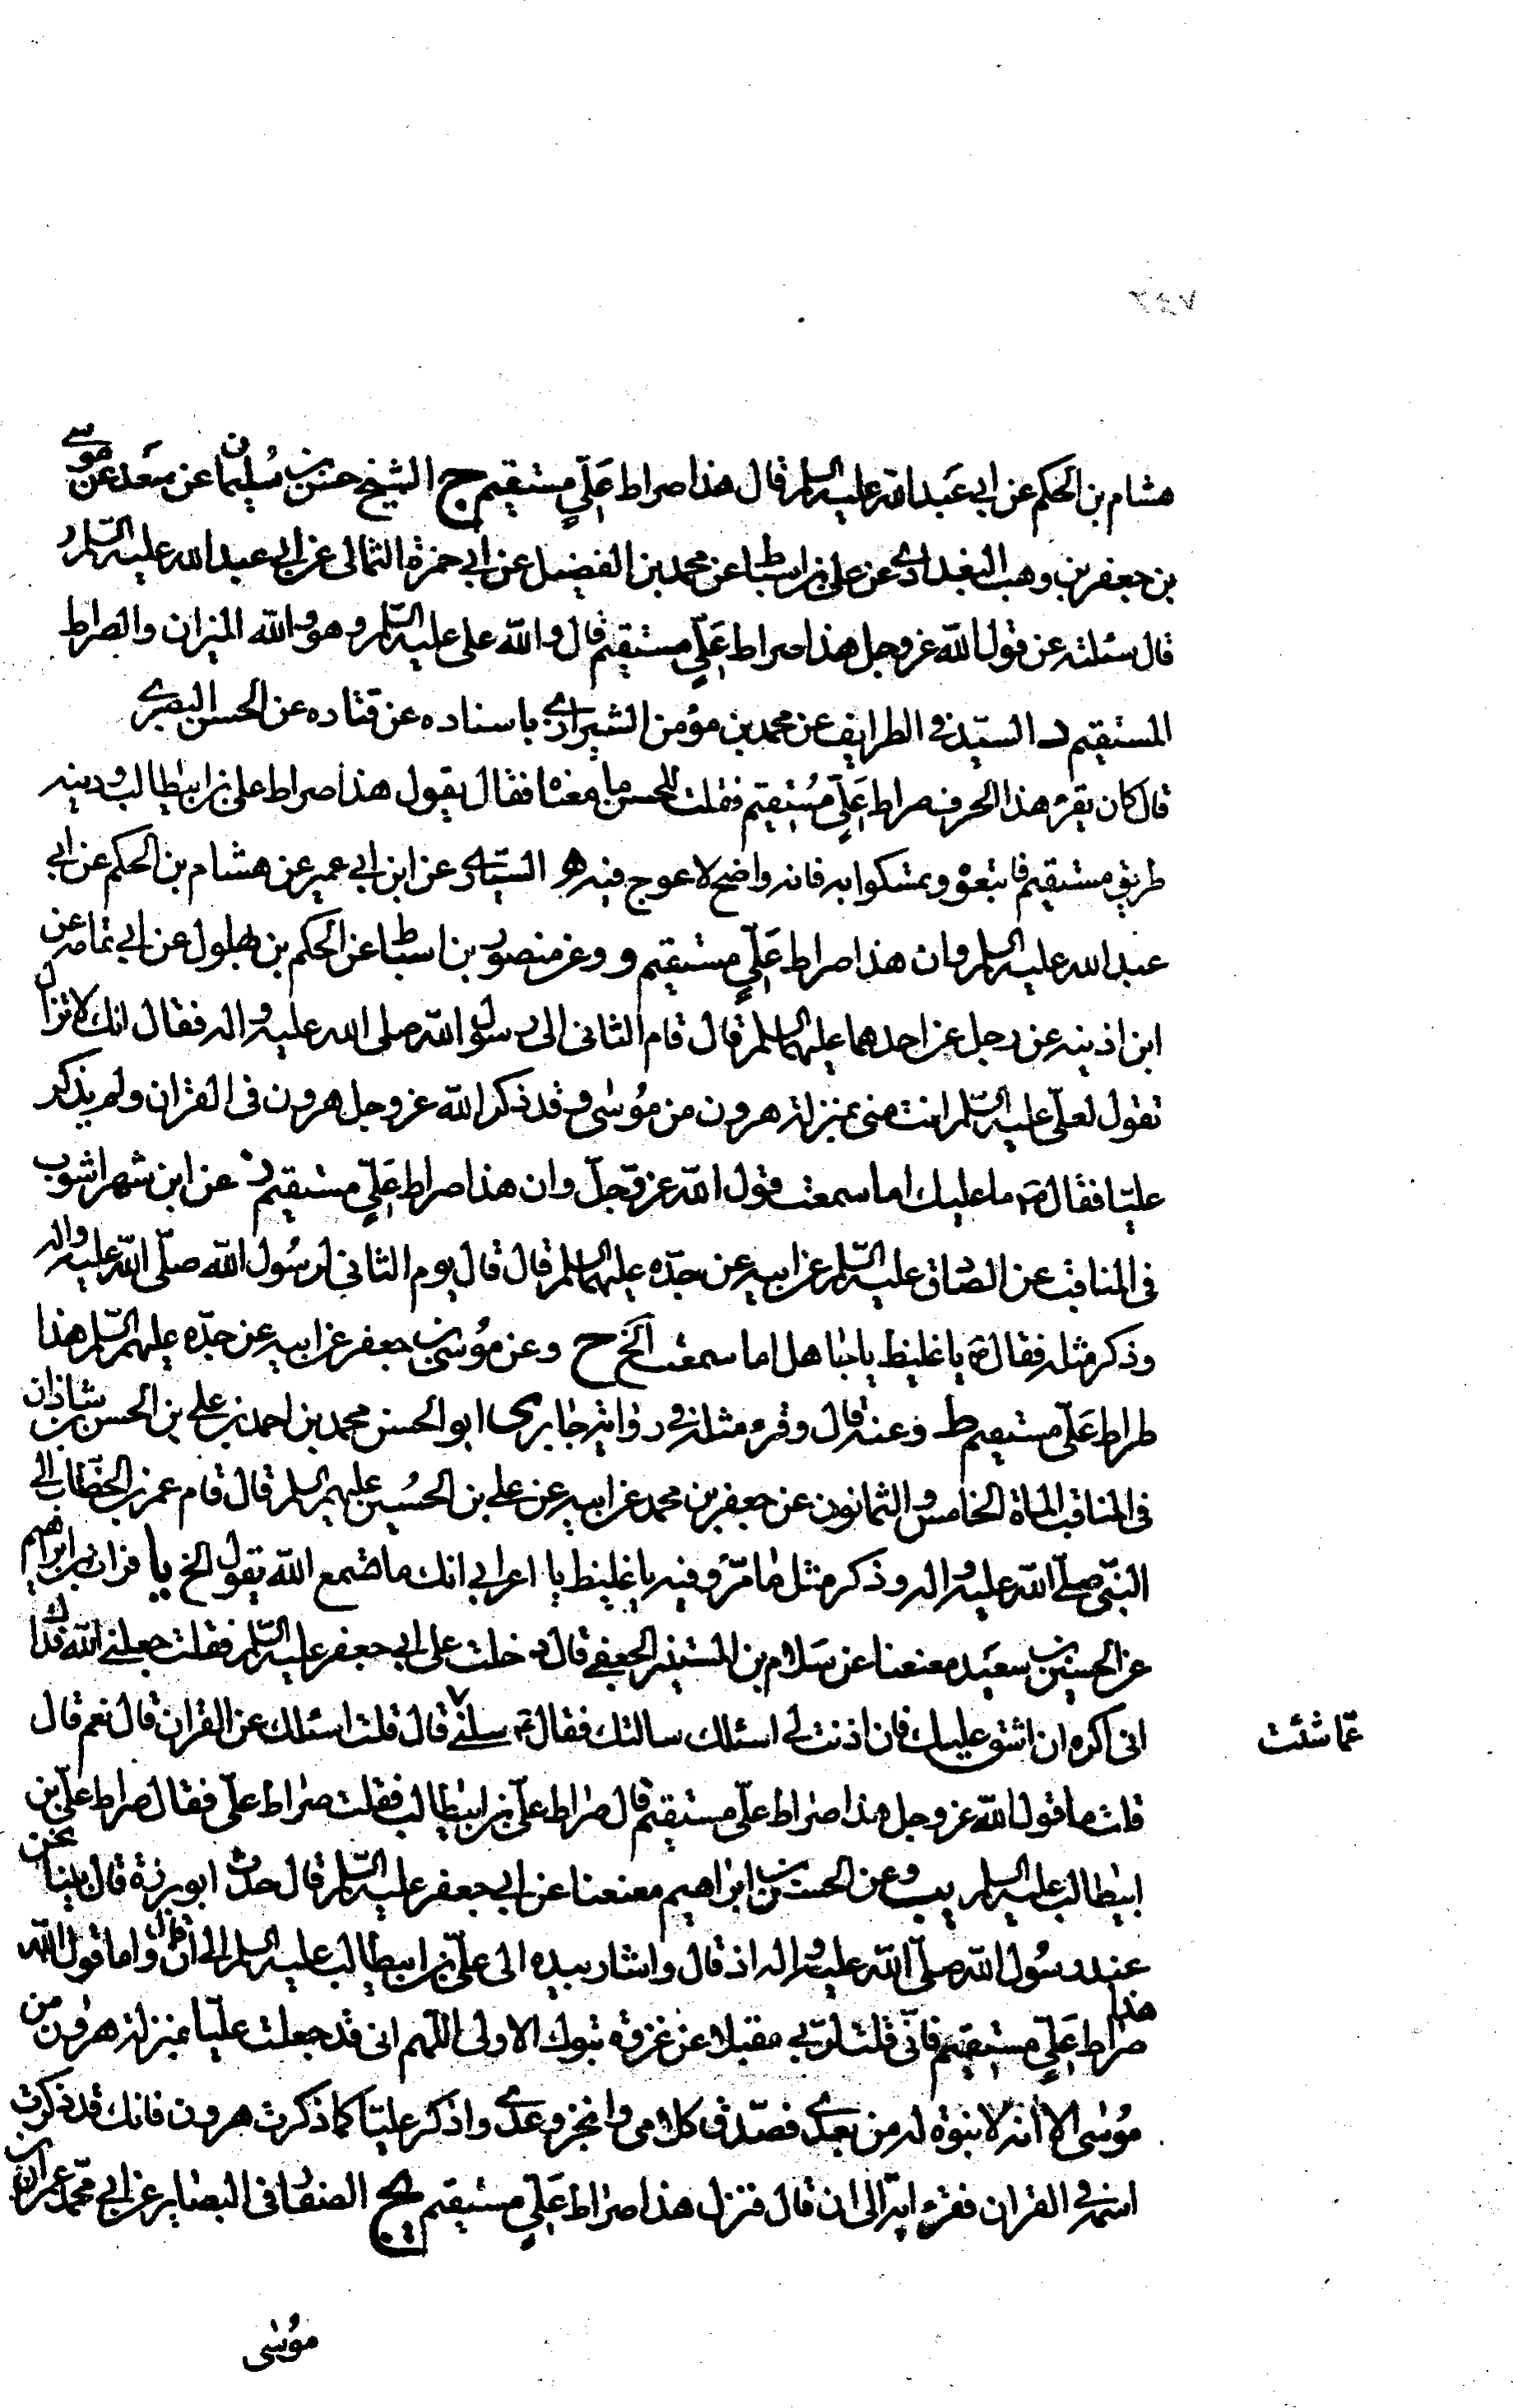 هشام بن الحكم عن ابي عبد الله عليه السلم قال هذا صراط عَلِيٍّ مستقيم ج الشيخ حسن بن سُليمان عن سعد عن موسى
بن جعفر بن وهب البغدادي عن علي بن اسباط عن محمد بن الفضيل عن ابي حمزة الثمالي عن ابي عبد الله عليه السّلم
قال سئلته عن قول الله عز وجل هذا صراط عَلِيٍّ مستقيم قال والله علي عليه السّلم وهو والله الميزان والصراط
المستقيم د السيّد في الطرايف عن محمد بن مؤمن الشيرازي باسناده عن قتاده عن الحسن البصري
قال كان يقرء هذا الحرف صراط عَلِيٍّ مُستقيم فقلت للحسن ما معناه فقال يقول هذا صراط علي بن ابيطالب ودينه
طريق مستقيم فاتبعوه وتمسكوا به فانه واضح لا عوج فيه ه السيّاري عن ابن ابي عمير عن هشام بن الحكم عن ابي
عبد الله عليه السلم وان هذا صراط عَلِيٍّ مستقيم و وعن منصور بن اسباط عن الحكم بن بهلول عن ابي تمامه عن
ابن اذينه عن رجل عن احدهما عليهما السلم قال قام الثاني الى رسول الله صلى الله عليه واله فقال انك لا تزال
تقول لعلي عليه السّلم انت مني بمنزلة هرون من مُوسٰى وقد ذكر الله عز وجل هرون في القران ولم يذكر
عليّا فقال ص ما عليك اما سمعت قول الله عز وجلّ وان هذا صراط عَلِيٍّ مستقيم ز عن ابن شهراشوب
في المناقب عن الصّادق عليه السّلم عن ابيه عن جدّه عليهما السلم قال قال يوم الثاني لرسُول الله صلّى الله عليه واله
وذكر مثله فقال ص يا غليظ يا جاهل اما سمعت الخ ح وعن مُوسى بن جعفر عن ابيه عن جدّه عليهم السّلم هذا
طراط عَلِيّ مستقيم ط وعنه قال وقرء مثله في رواية جابر ى ابو الحسن محمد بن احمد بن علي بن الحسن بن شاذان
في المناقب الماة الخامس والثمانون عن جعفر بن محمد عن ابيه عن علي بن الحُسين عليهم السلم قال قام عمر بن الخطّاب الى
النبّي صلّى الله عليه واله وذكر مثل ما مرّ وفيه يا غليظ يا اعرابي انك ما تسمع الله يقول الخ يا فرات بن ابراهيم
عن الحسين بن سعيد معنعنا عن سَلام بن المستنير الجعفي قال دخلت على ابي جعفر عليه السّلم فقلت جعلني الله فداك
اني اكره ان اشق عليك فان اذنت لي اسئلك سالتك فقال ع سلني قال قلت اسئلك عن القران قال نعم قال
عمّا شئت
قلت ما قول الله عز وجل هذا صراط عليّ مستقيم قال صراط عليّ بن ابيطالب فقلت صراط عليّ فقال صراط عليّ بن
ابيطالب عليه السلم يب وعن الحسن بن ابراهيم معنعنا عن ابي جعفر عليه السّلم قال حدث ابو برزة قال بينا نحن
عند رسُول الله صلّى الله عليه واله اذ قال واشار بيده الى عليّ بن ابيطالب عليه السلم الى ان قال واما قول الله
هذا صراط عَلِيٍّ مستقيم فانّي قلت لربّي مقبلا عن غزوة تبوك الاولى اللهم اني قد جعلت عليّا بمنزلة هرون من
مُوسٰى الا انه لا نبوة له من بعدي فصدّق كلامي وانجز وعدي واذكر عليّا كما ذكرت هرون فانك قد ذكرت
اسمه في القران فقرء اية الى ان قال فنزل هذا صراط عَلِيٍّ مستقيم يج الصفّار في البصاير عن ابي محمد عمران بن
مُوسٰى